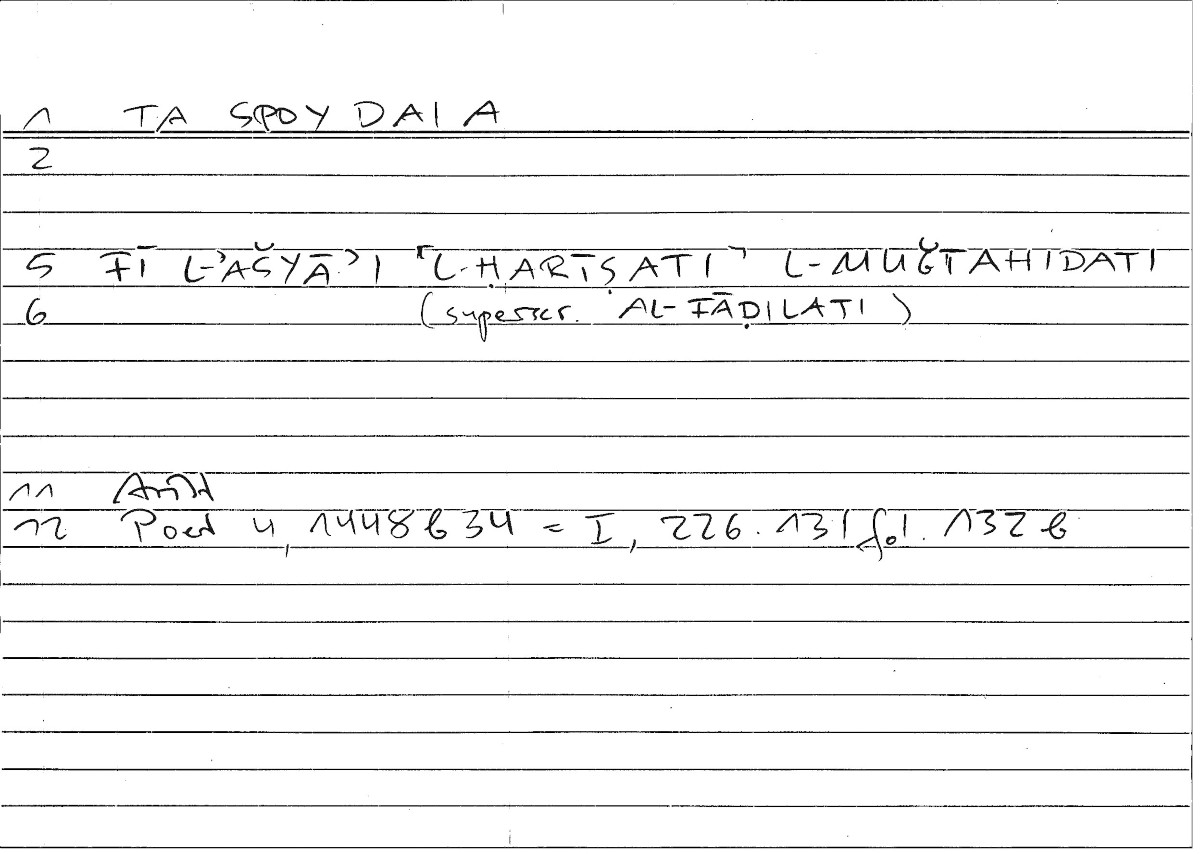 1 TA SPOYDAIA
2
5 FĪ L-ʾAŠYĀʾI ⌜L-ḤARĪṢATI⌝ L-MUǦTAHIDATI
6 (superscr. AL-FĀḌILATI)
11 Arist
12 Poet 4, 1448b34 = I, 226.13 / fol. 132b